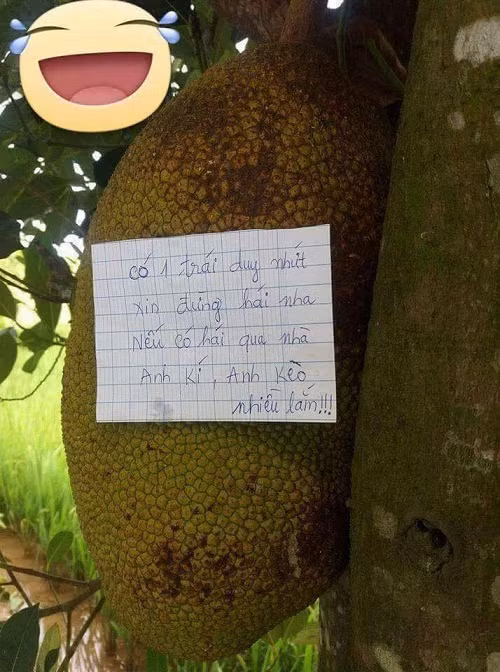 Có 1 trái duy nhứt
xin đừng hái nha
Nếu có hái qua nhà
Anh Kí, Anh Kẽo
nhiều lắm!!!